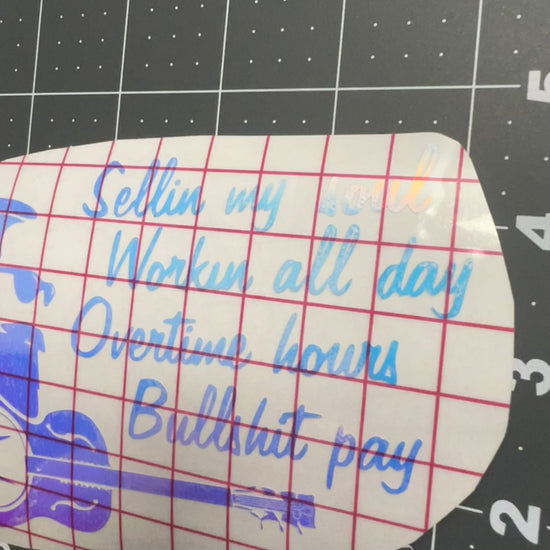 Sellin my soul
Workin all day
Overtime hours
Bullshit pay
5
4
3
2